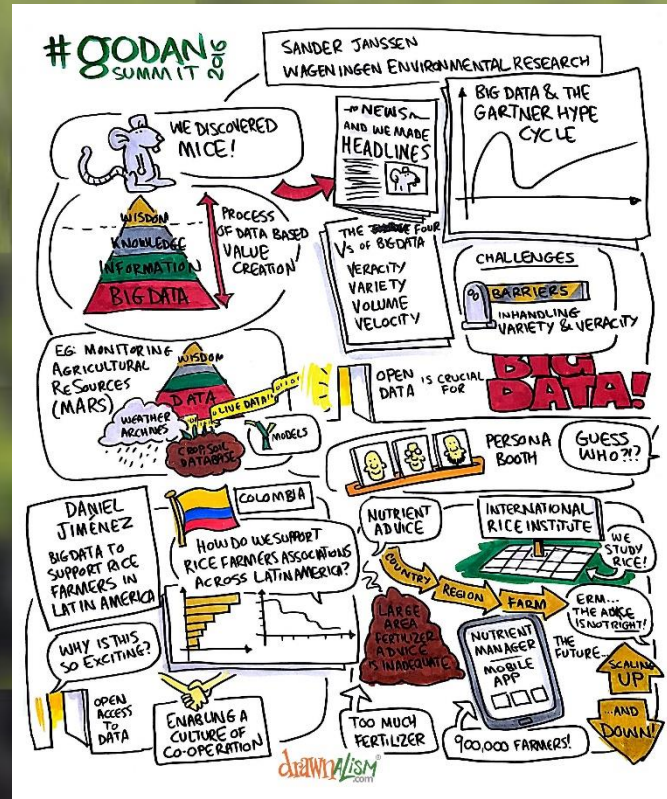 #GODAN
SUMMIT 2016
SANDER JANSSEN
WAGENINGEN ENVIRONMENTAL RESEARCH
WE DISCOVERED
MICE!
NEWS
AND WE MADE
HEADLINES
BIG DATA & THE
GARTNER HYPE
CYCLE
WISDOM
KNOWLEDGE
INFORMATION
BIG DATA
PROCESS
OF DATA BASED
VALUE
CREATION
THE FOUR
Vs OF BIG DATA
VERACITY
VARIETY
VOLUME
VELOCITY
CHALLENGES
BARRIERS
IN HANDLING
VARIETY & VERACITY
EG: MONITORING
AGRICULTURAL
ReSOURCES
(MARS)
WISDOM
DATA
LIVE DATA!
WEATHER
ARCHIVES
CROP, SOIL
DATABASE
MODELS
OPEN
DATA
IS CRUCIAL
FOR
BIG
DATA!
PERSONA
BOOTH
GUESS
WHO?!?
DANIEL
JIMÉNEZ
BIG DATA TO
SUPPORT RICE
FARMERS IN
LATIN AMERICA
COLOMBIA
HOW DO WE SUPPORT
RICE FARMERS ASSOCIATIONS
ACROSS LATIN AMERICA?
WHY IS THIS
SO EXCITING?
OPEN
ACCESS
TO
DATA
ENABLING A
CULTURE OF
CO-OPERATION
NUTRIENT
ADVICE
INTERNATIONAL
RICE INSTITUTE
WE
STUDY
RICE!
COUNTRY
REGION
FARM
ERM...
THE ADVICE
IS NOT RIGHT!
LARGE
AREA
FERTILIZER
ADVICE
IS INADEQUATE
NUTRIENT
MANAGER
MOBILE
APP
THE
FUTURE...
SCALING
UP
...AND
DOWN!
TOO MUCH
FERTILIZER
900,000 FARMERS!
drawnalism
.com